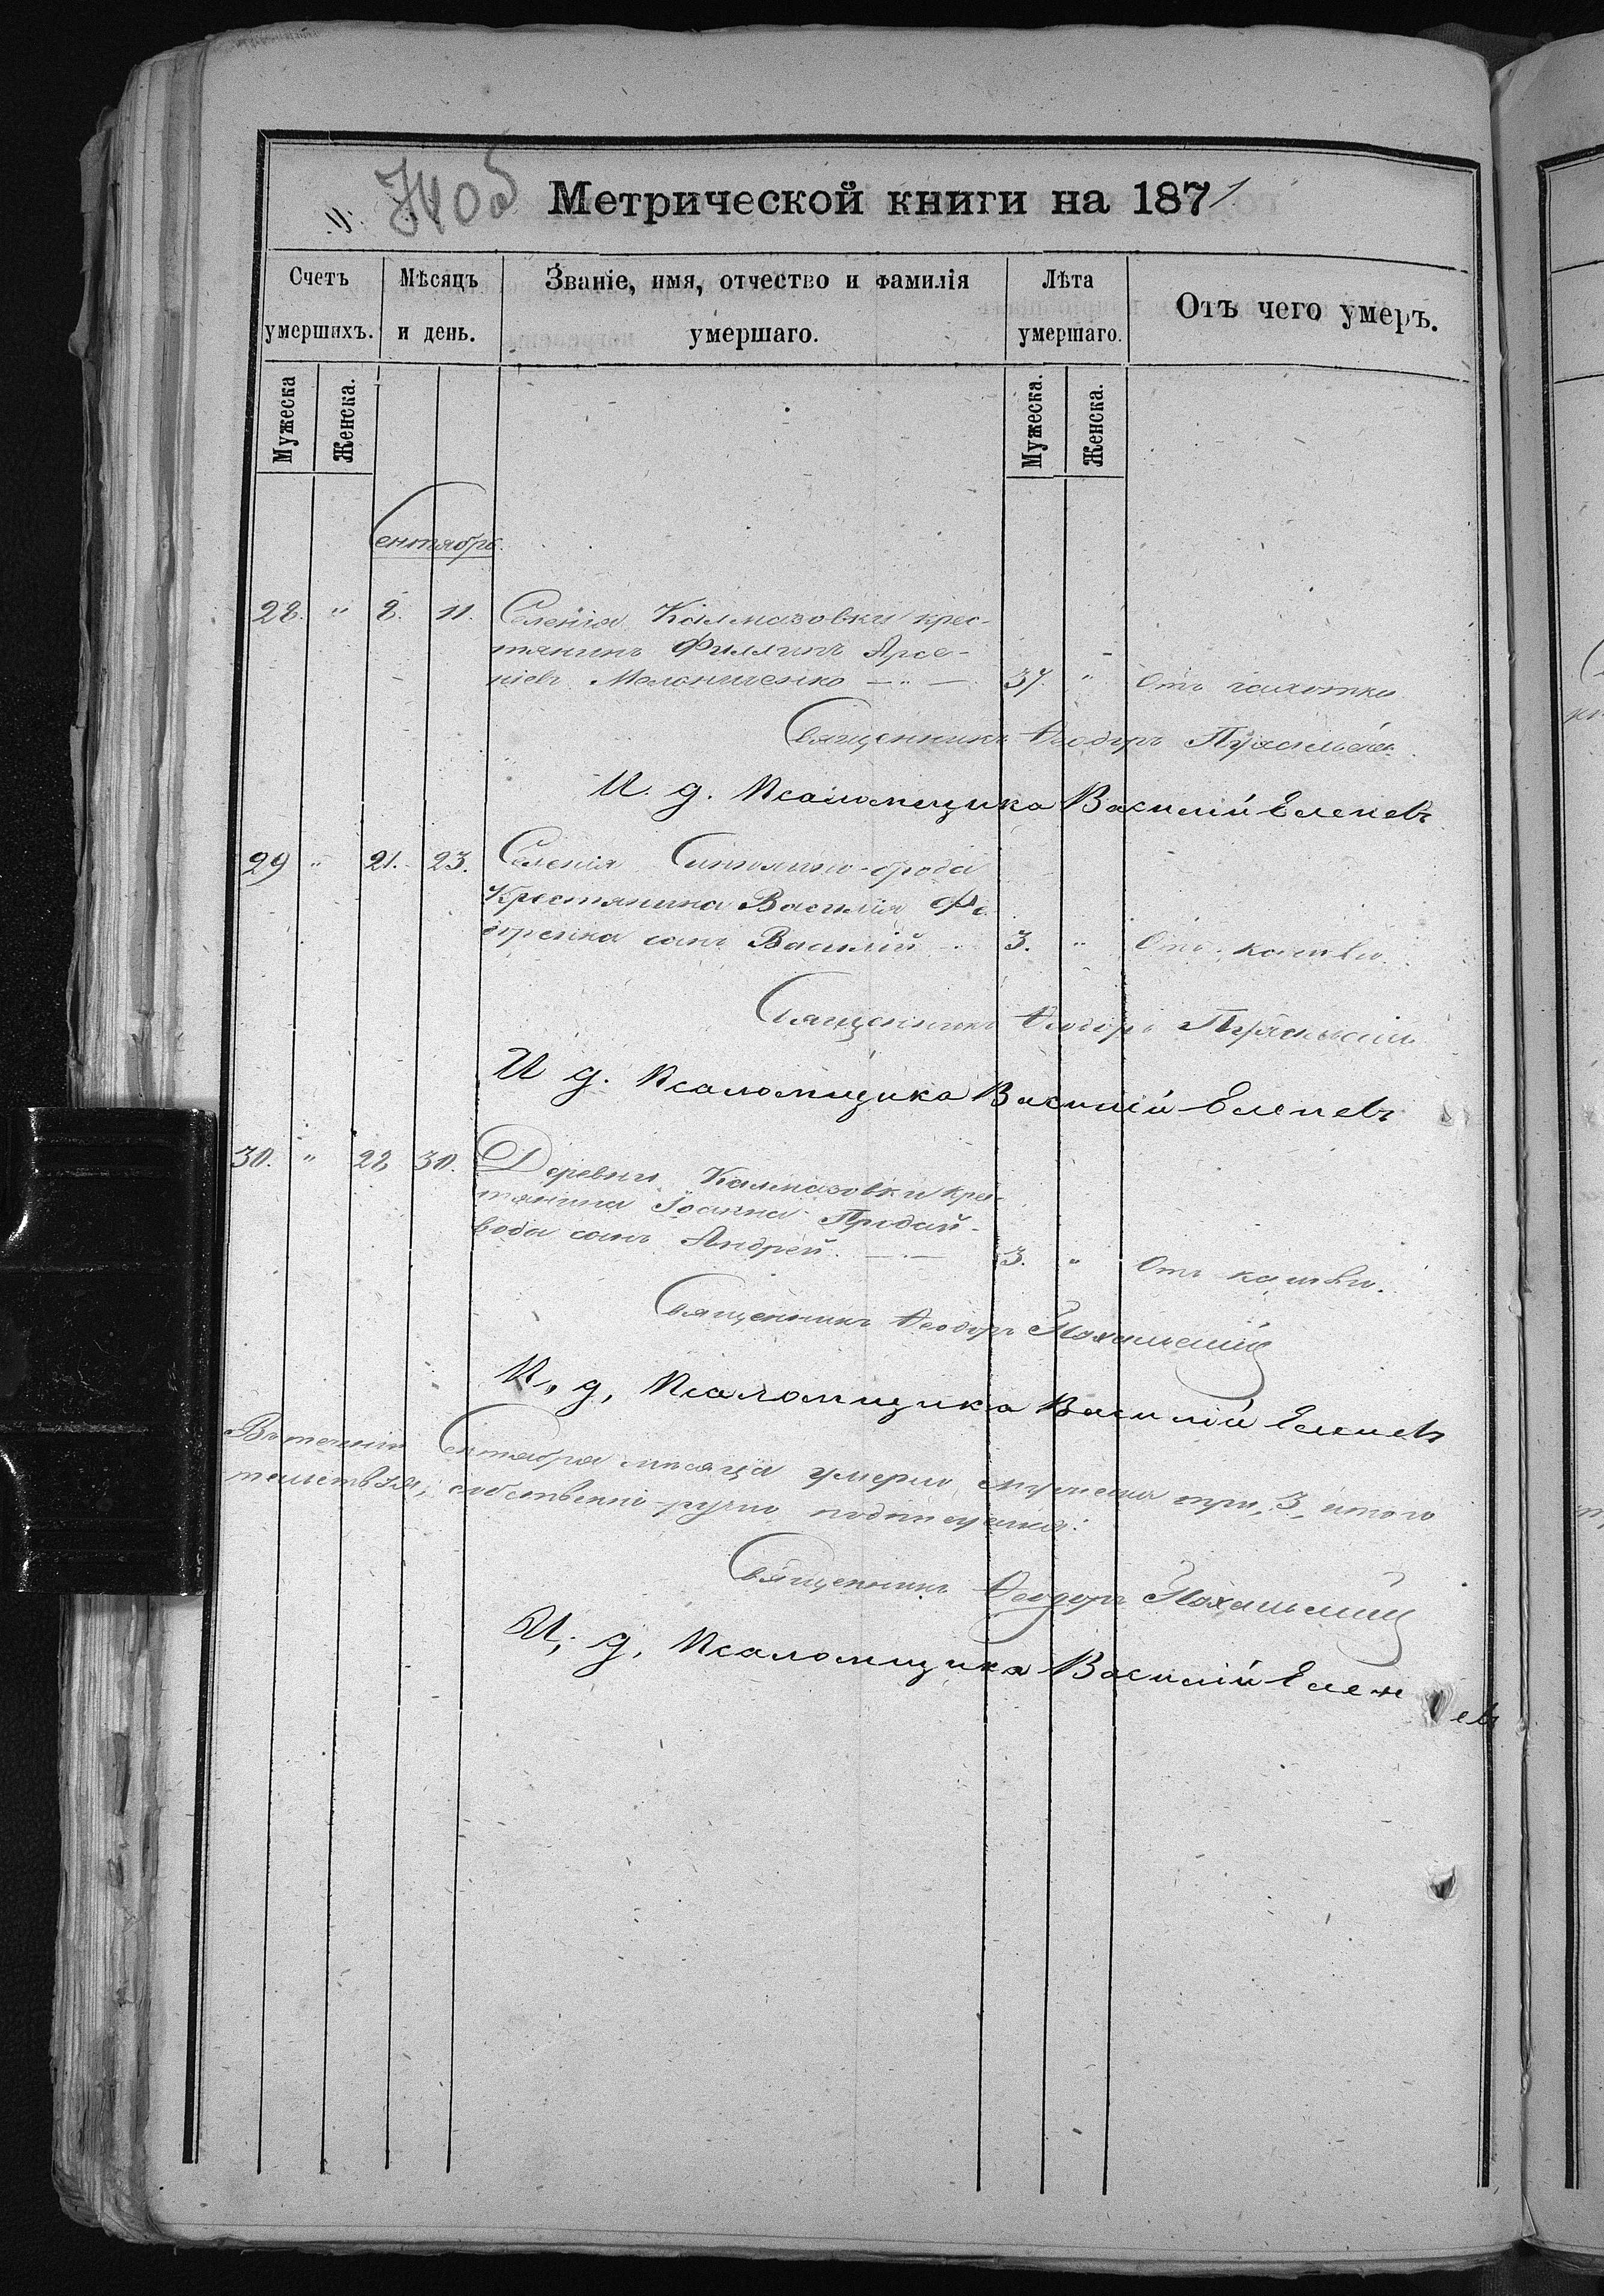 740об
Метрической книги на 1871
Счетъ умершихъ.
Мѣсяцъ и день.
Званіе, имя, отчество и фамилія умершаго.
Лѣта умершаго.
Отъ чего умеръ.
Мужеска
Женска.
Мужеска.
Женска.
Сентябрь.
28. " 8. 11. Селенія Калмазовки крес-
тянинъ Филлипъ Арсе-
ніевъ Мельниченко 37. " Отъ чахотки
Священникъ Ѳеодоръ
И. д. Псаломщика Василій Еленевъ
29 " 21. 23. Селенія
Крестянина Василія Фе-
доренка сынъ Василій 3. " Отъ кашлю.
Священникъ Ѳеодоръ
И д. Псаломщика Василій Еленевъ
30. " 28 30. Деревни Калмазовки крес-
тянина Іоанна Придай-
вода сынъ Андрей. 3. " Отъ кашлю.
Священникъ Ѳеодоръ
И. д, Псаломщика Василій Еленевъ
Въ теченіи Сентября мѣсяца умерло мужеска три, 3,
собственно-ручно подписуемся:
Священникъ Ѳеодоръ
И, д, Псаломщика Василій Еленевъ